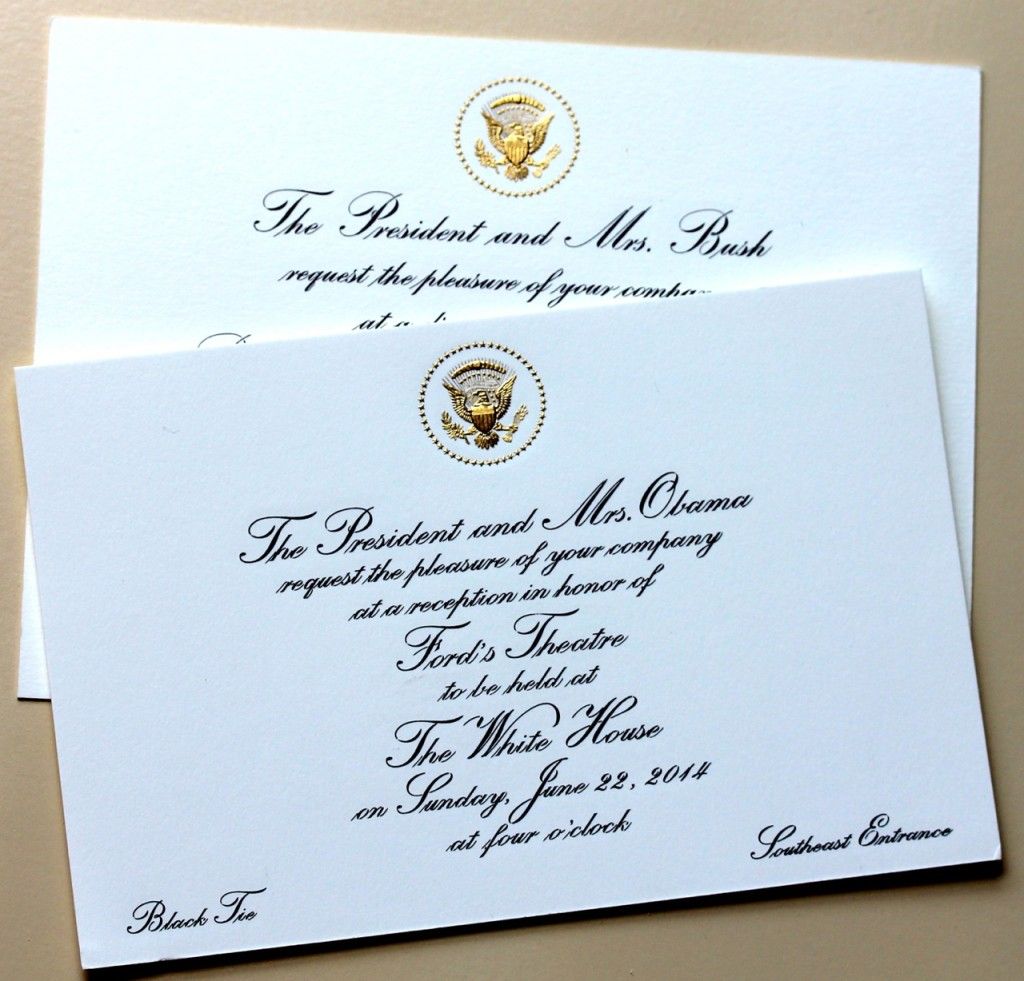 The President and Mrs. Bush
request the pleasure of your
at a
The President and Mrs. Obama
request the pleasure of your company
at a reception in honor of
Ford's Theatre
to be held at
The White House
on Sunday, June 22, 2014
at four o'clock
Southeast Entrance
Black Tie